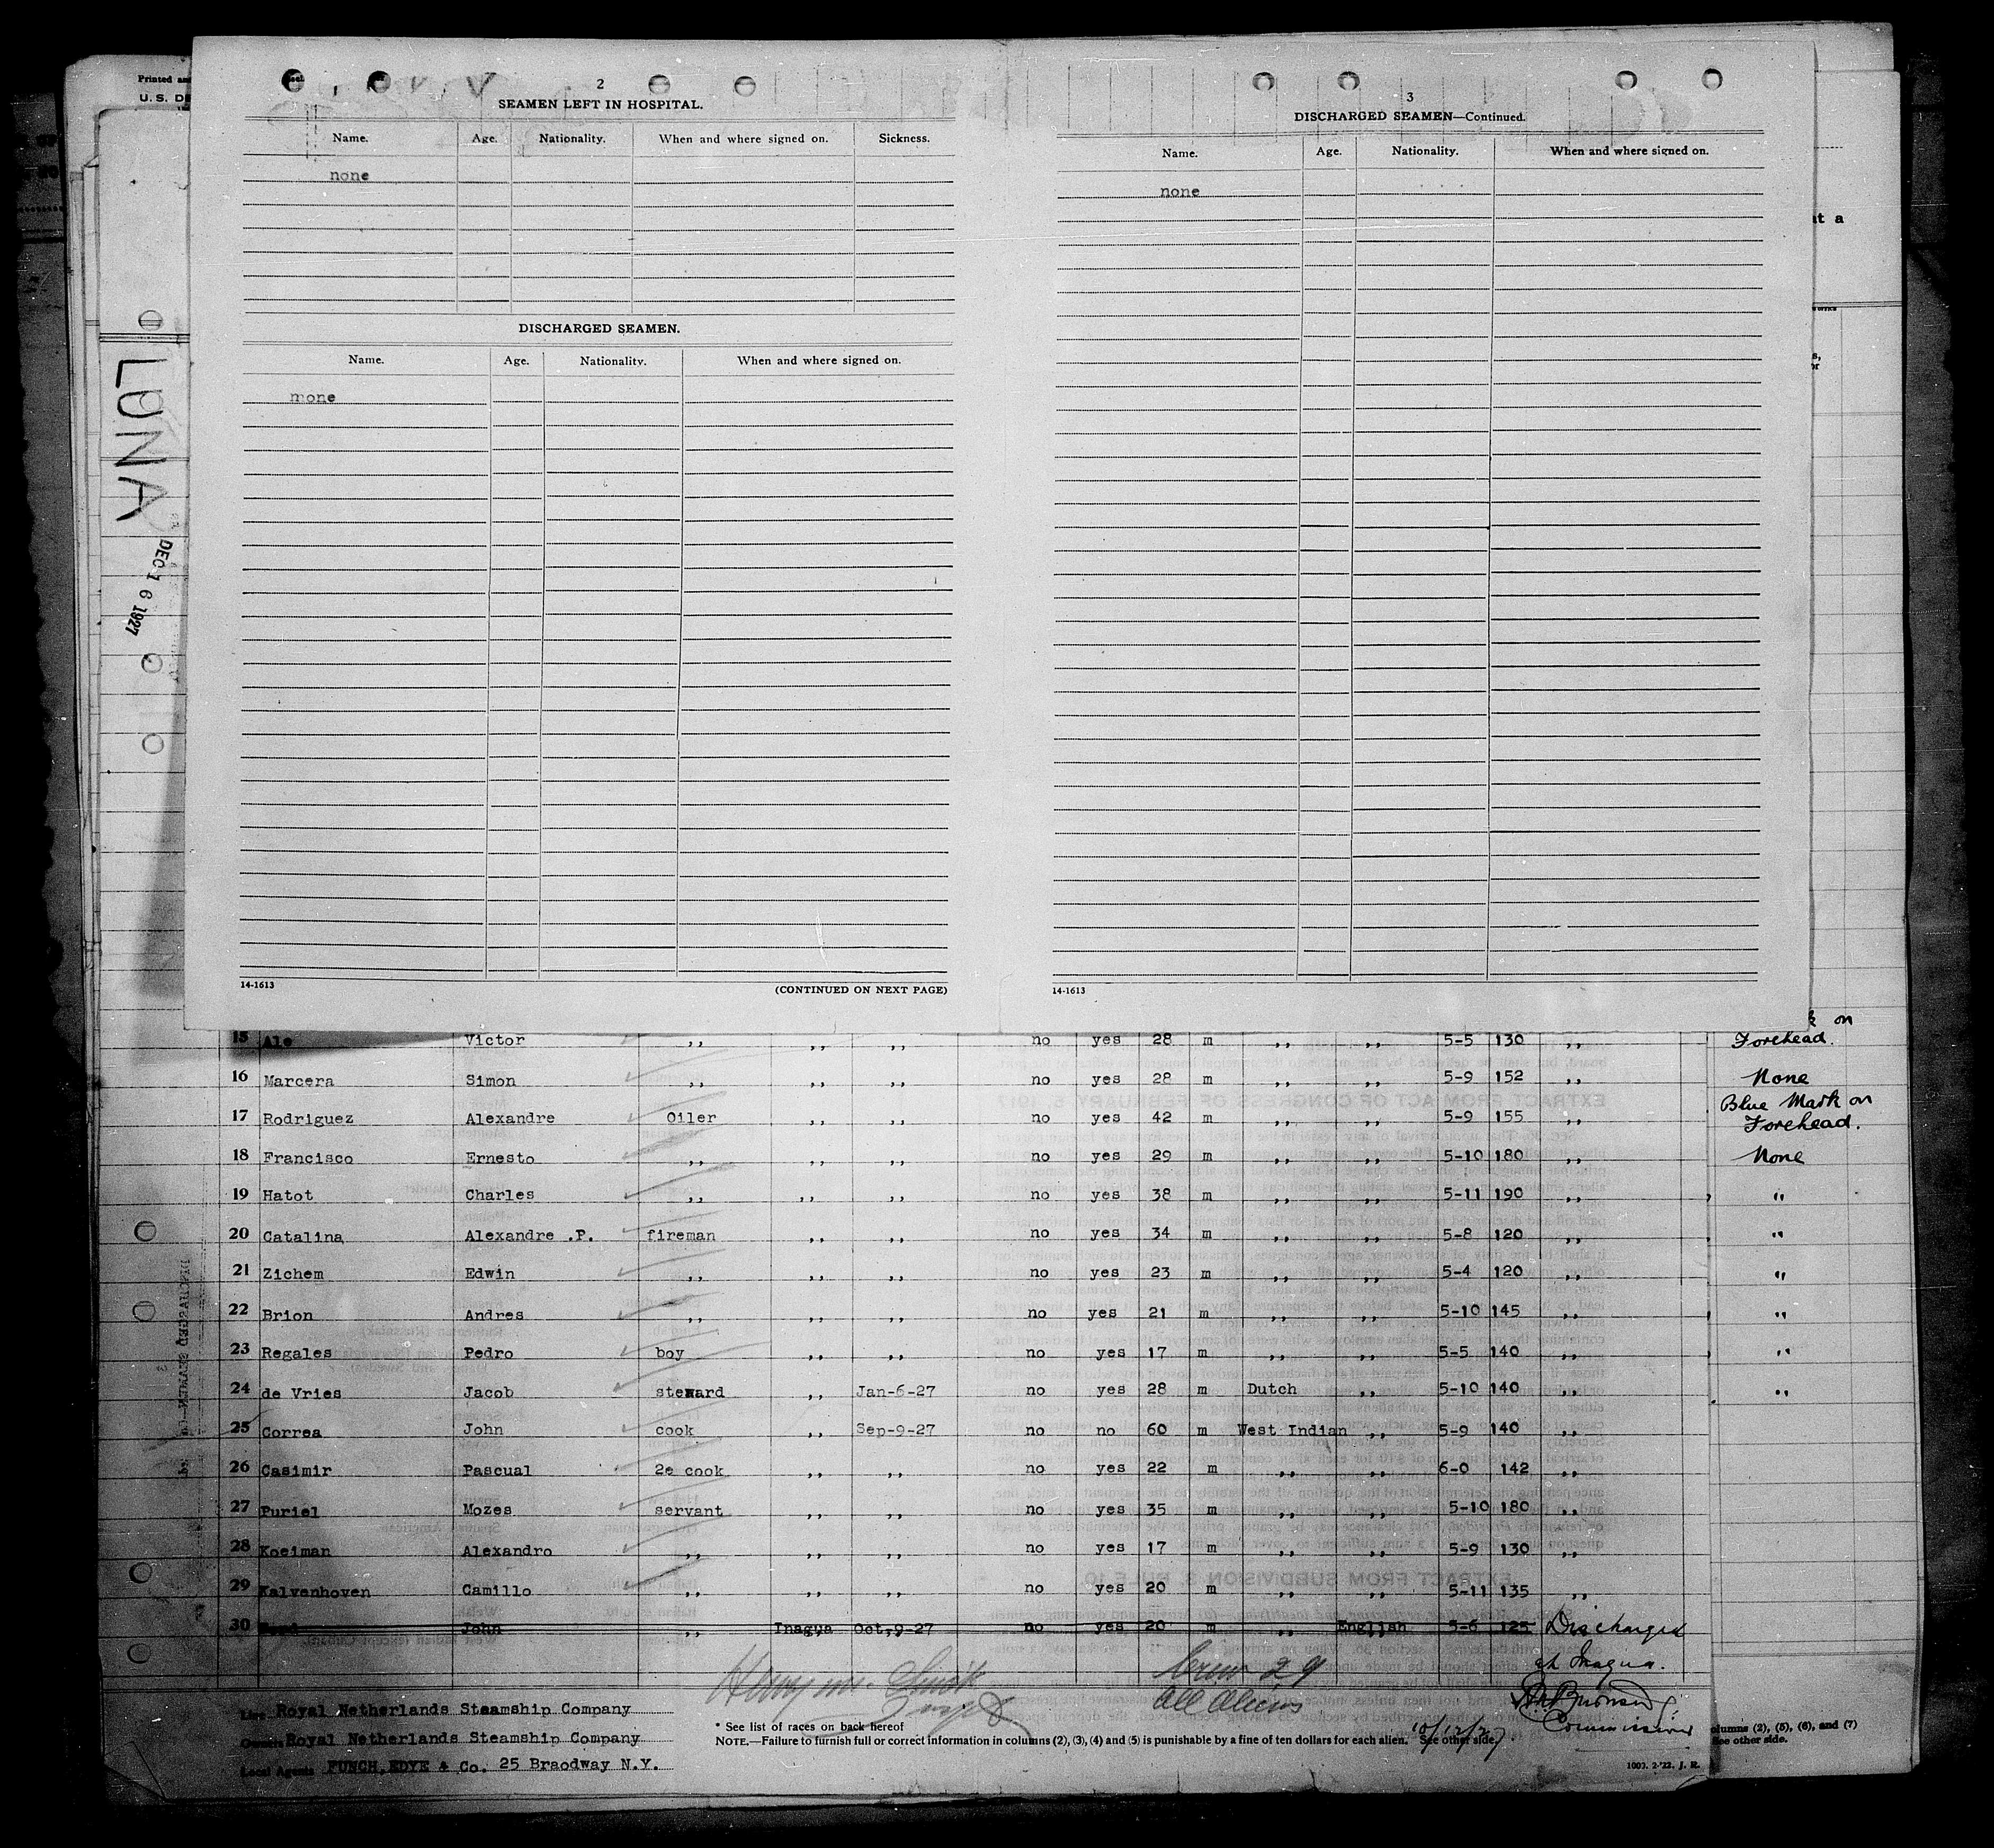 Printed
U. S. DE
LUNA
DEC 16 1927
2
SEAMEN LEFT IN HOSPITAL.
Name. Age. Nationality. When and where signed on. Sickness.
none
DISCHARGED SEAMEN.
Name. Age. Nationality. When and where signed on.
none
14-1613 (CONTINUED ON NEXT PAGE)
3
DISCHARGED SEAMEN—Continued.
Name. Age. Nationality. When and where signed on.
none
14-1613
at a
on
15 Ale Victor ,, ,, ,, no yes 28 m ,, ,, 5-5 130 ,, Forehead.
16 Marcera Simon ,, ,, ,, no yes 28 m ,, ,, 5-9 152 ,, None
17 Rodriguez Alexandre Oiler ,, ,, no yes 42 m ,, ,, 5-9 155 ,, Blue Mark on
Forehead.
18 Francisco Ernesto ,, ,, ,, no yes 29 m ,, ,, 5-10 180 ,, None
19 Hatot Charles ,, ,, ,, no yes 38 m ,, ,, 5-11 190 ,, "
20 Catalina Alexandre .P. fireman ,, ,, no yes 34 m ,, ,, 5-8 120 ,, "
21 Zichem Edwin ,, ,, ,, no yes 23 m ,, ,, 5-4 120 ,, "
22 Brion Andres ,, ,, ,, no yes 21 m ,, ,, 5-10 145 ,, "
23 Regales Pedro boy ,, ,, no yes 17 m ,, ,, 5-5 140 ,, "
24 de Vries Jacob steward ,, Jan-6-27 no yes 28 m Dutch ,, 5-10 140 ,, "
25 Correa John cook ,, Sep-9-27 no no 60 m West Indian ,, 5-9 140 ,,
26 Casimir Pascual 2e cook ,, ,, no yes 22 m ,, ,, 6-0 142 ,,
27 Puriel Mozes servant ,, ,, no yes 35 m ,, ,, 5-10 180 ,,
28 Koeiman Alexandro ,, ,, ,, no yes 17 m ,, ,, 5-9 130 ,,
29 Kalvenhoven Camillo ,, ,, ,, no yes 20 m ,, ,, 5-11 135 ,,
30 John ,, Inagua Oct,9-27 no yes 20 m ,, English 5-6 125 Discharged
at Inagua.
Crew 29
All Aliens
Line Royal Netherlands Steamship Company
Owners Royal Netherlands Steamship Company
Local Agents FUNCH, EDYE & Co. 25 Braodway N.Y.
* See list of races on back hereof
NOTE.—Failure to furnish full or correct information in columns (2), (3), (4) and (5) is punishable by a fine of ten dollars for each alien. See other side.
10/12/27
Commission
1003. 2-'22. J. R.
columns (2), (5), (6), and (7)
See other side.